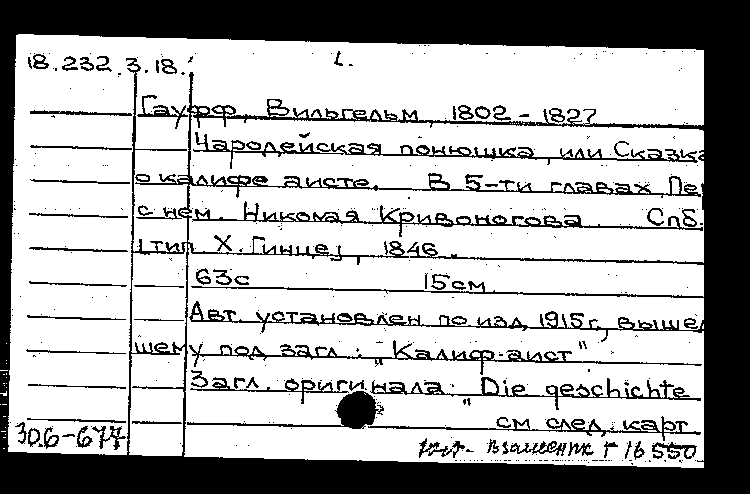 18.232.3.18. 1.
Гауфф, Вильгельм, 1802 - 1827
Чародейская понюшка, или Сказка
о калифе аисте. В 5-ти главах. Пер
с нем. Николая Кривоногова. Спб.
[тип. Х. Гинце], 1846.
63с 15см.
Авт. установлен по изд. 1915г., вышед
шему под загл.: "Калиф-аист"
Загл. оригинала: "Die geschichte
см. след. карт
30.6-677 Взаменик Г 16 550